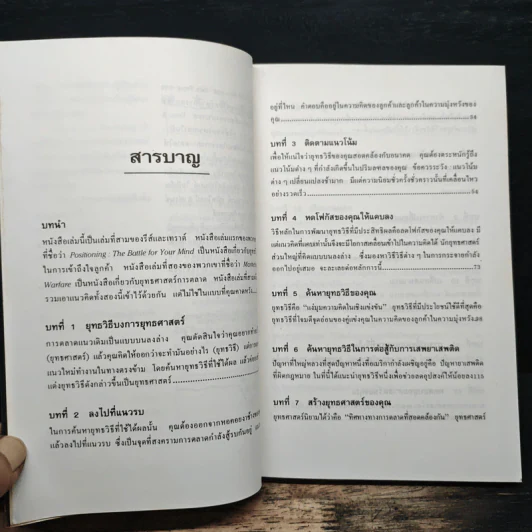 สารบาญ
บทนำ
หนังสือเล่มนี้เป็นเล่มที่สามของรีส์และเทราต์ หนังสือเล่มแรกของ
ที่ชื่อว่า Positioning : The Battle for Your Mind เป็นหนังสือเกี่ยวกับ
ในการเข้าถึงใจลูกค้า หนังสือเล่มที่สองของพวกเขาที่ชื่อว่า
Warfare เป็นหนังสือเกี่ยวกับยุทธศาสตร์การตลาด หนังสือเล่มที่
รวมเอาแนวคิดทั้งสองนี้เข้าไว้ด้วยกัน แต่ไม่ใช่ในแบบที่คุณคาดหวัง
บทที่ 1 ยุทธวิธีบงการยุทธศาสตร์
การตลาดแนวเดิมเป็นแบบบนลงล่าง คุณตัดสินใจว่าคุณอยากทำ
(ยุทธศาสตร์) แล้วคุณคิดให้ออกว่าจะทำมันอย่างไร (ยุทธวิธี) แต่
แนวใหม่ทำงานในทางตรงข้าม โดยค้นหายุทธวิธีที่ใช้ได้ผล แล้ว
แต่งยุทธวิธีดังกล่าวขึ้นเป็นยุทธศาสตร์
บทที่ 2 ลงไปที่แนวรบ
ในการค้นหายุทธวิธีที่ใช้ได้ผลนั้น คุณต้องออกจากหอคอยงาช้าง
แล้วลงไปที่แนวรบ ซึ่งเป็นจุดที่สงครามการตลาดกำลังสู้รบกันอยู่
อยู่ที่ไหน คำตอบคืออยู่ในความคิดของลูกค้าและลูกค้าในความมุ่งหวังของ
คุณ
บทที่ 3 ติดตามแนวโน้ม
เพื่อให้แน่ใจว่ายุทธวิธีของคุณสอดคล้องกับอนาคต คุณต้องตระหนักรู้ถึง
แนวโน้มต่าง ๆ ที่กำลังเกิดขึ้นในปริมณฑลของคุณ ข้อควรระวัง แนวโน้ม
ต่าง ๆ เปลี่ยนแปลงช้ามาก มีแต่ความนิยมชั่วครั้งชั่วคราวนั้นที่เคลื่อนไหว
อย่างรวดเร็ว
บทที่ 4 หดโฟกัสของคุณให้แคบลง
วิธีหลักในการพัฒนายุทธวิธีที่มีประสิทธิผลคือลดโฟกัสของคุณให้แคบลง มี
แต่แนวคิดที่คมเท่านั้นที่จะมีโอกาสเคลื่อนเข้าไปในความคิดได้ นักยุทธศาสตร์
ส่วนใหญ่ที่คิดแบบบนลงล่าง ซึ่งมองหาวิธีต่าง ๆ ในการกระจายกำลัง
ออกไปอยู่เสมอ จะละเลยต่อหลักการนี้ 73
บทที่ 5 ค้นหายุทธวิธีของคุณ
คือ “แง่มุมความคิดในเชิงแข่งขัน” ยุทธวิธีที่มีประโยชน์ใช้ดีที่สุดคือ
ยุทธวิธีที่โจมตีจุดอ่อนของคู่แข่งคุณในความคิดของลูกค้าในความมุ่งหวัง
บทที่ 6 ค้นหายุทธวิธีในการต่อสู้กับการเสพยาเสพติด
ปัญหาที่ใหญ่หลวงที่สุดปัญหาหนึ่งที่อเมริกากำลังเผชิญอยู่คือ ปัญหายาเสพติด
ที่ผิดกฎหมาย ในที่นี้ได้แนะนำยุทธวิธีหนึ่งเพื่อช่วยลดอุปสงค์ให้น้อยลง 115
บทที่ 7 สร้างยุทธศาสตร์ของคุณ
ยุทธศาสตร์นิยามได้ว่าคือ “ทิศทางทางการตลาดที่สอดคล้องกัน” ยุทธศาสตร์